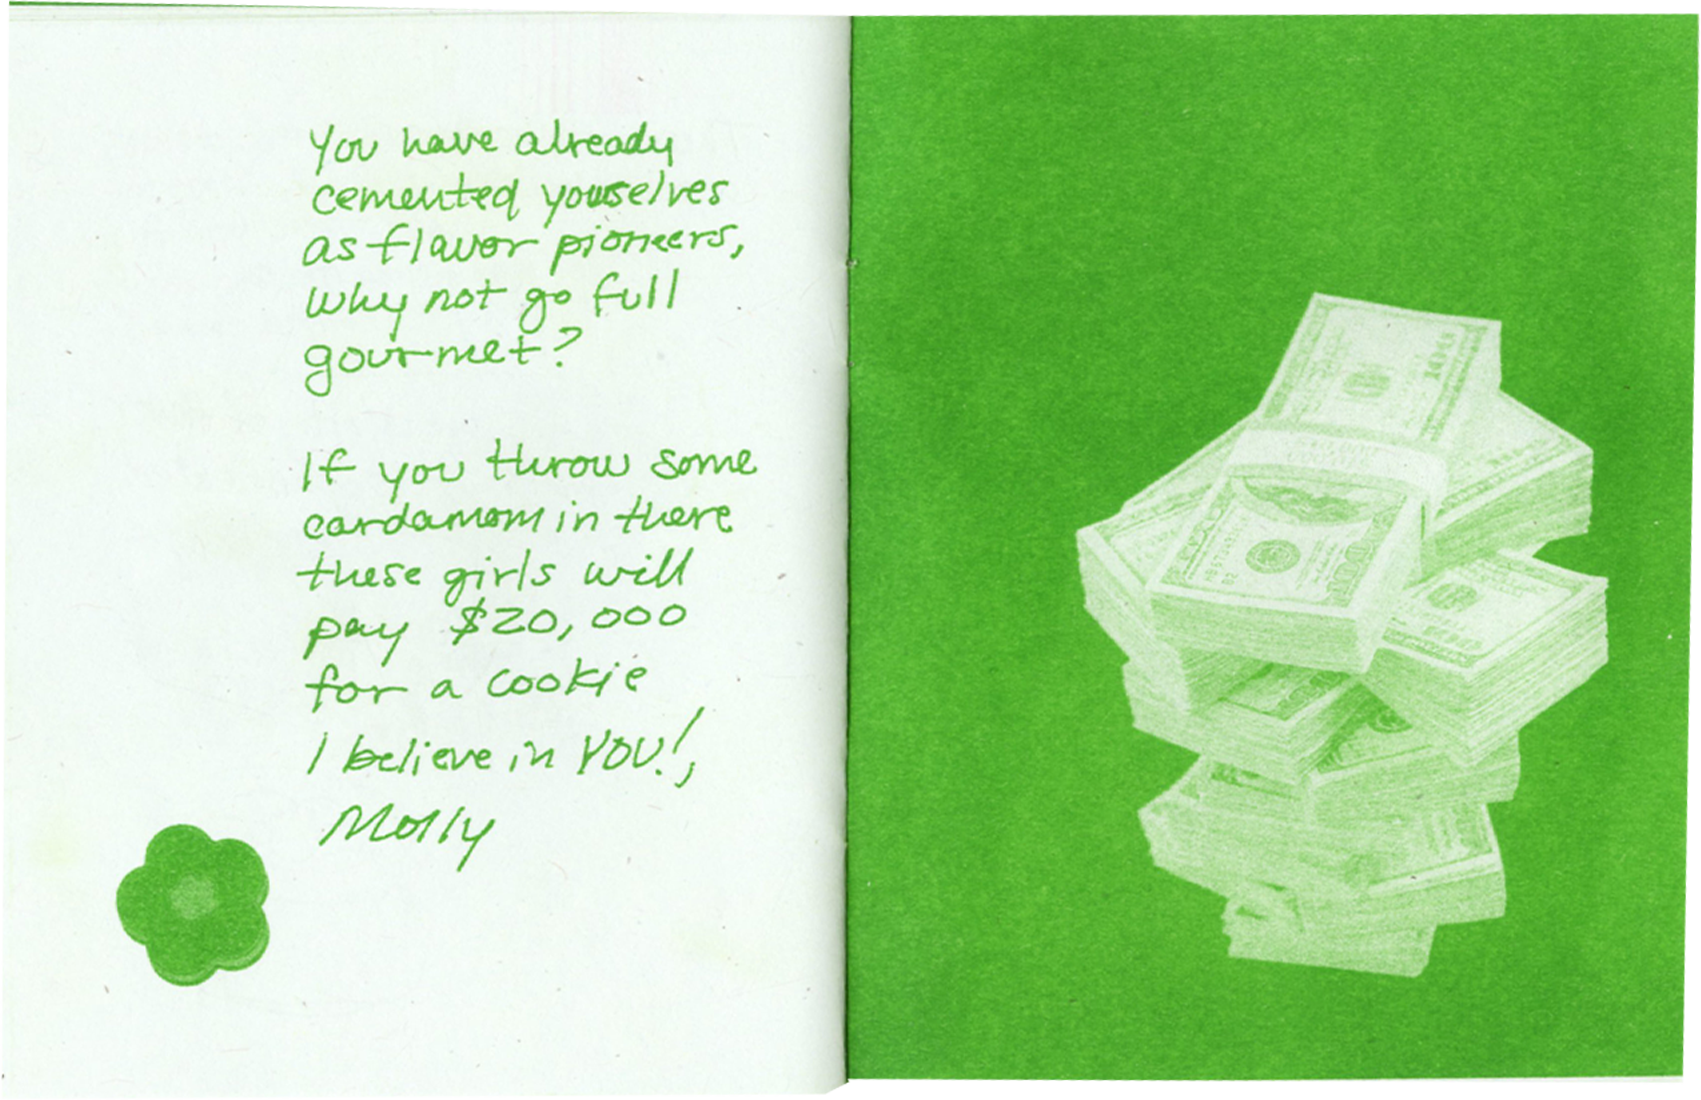 You have already
cemented yourselves
as flavor pioneers,
why not go full
gourmet?
If you throw some
cardamom in there
these girls will
pay $20,000
for a cookie
I believe in YOU!,
Molly